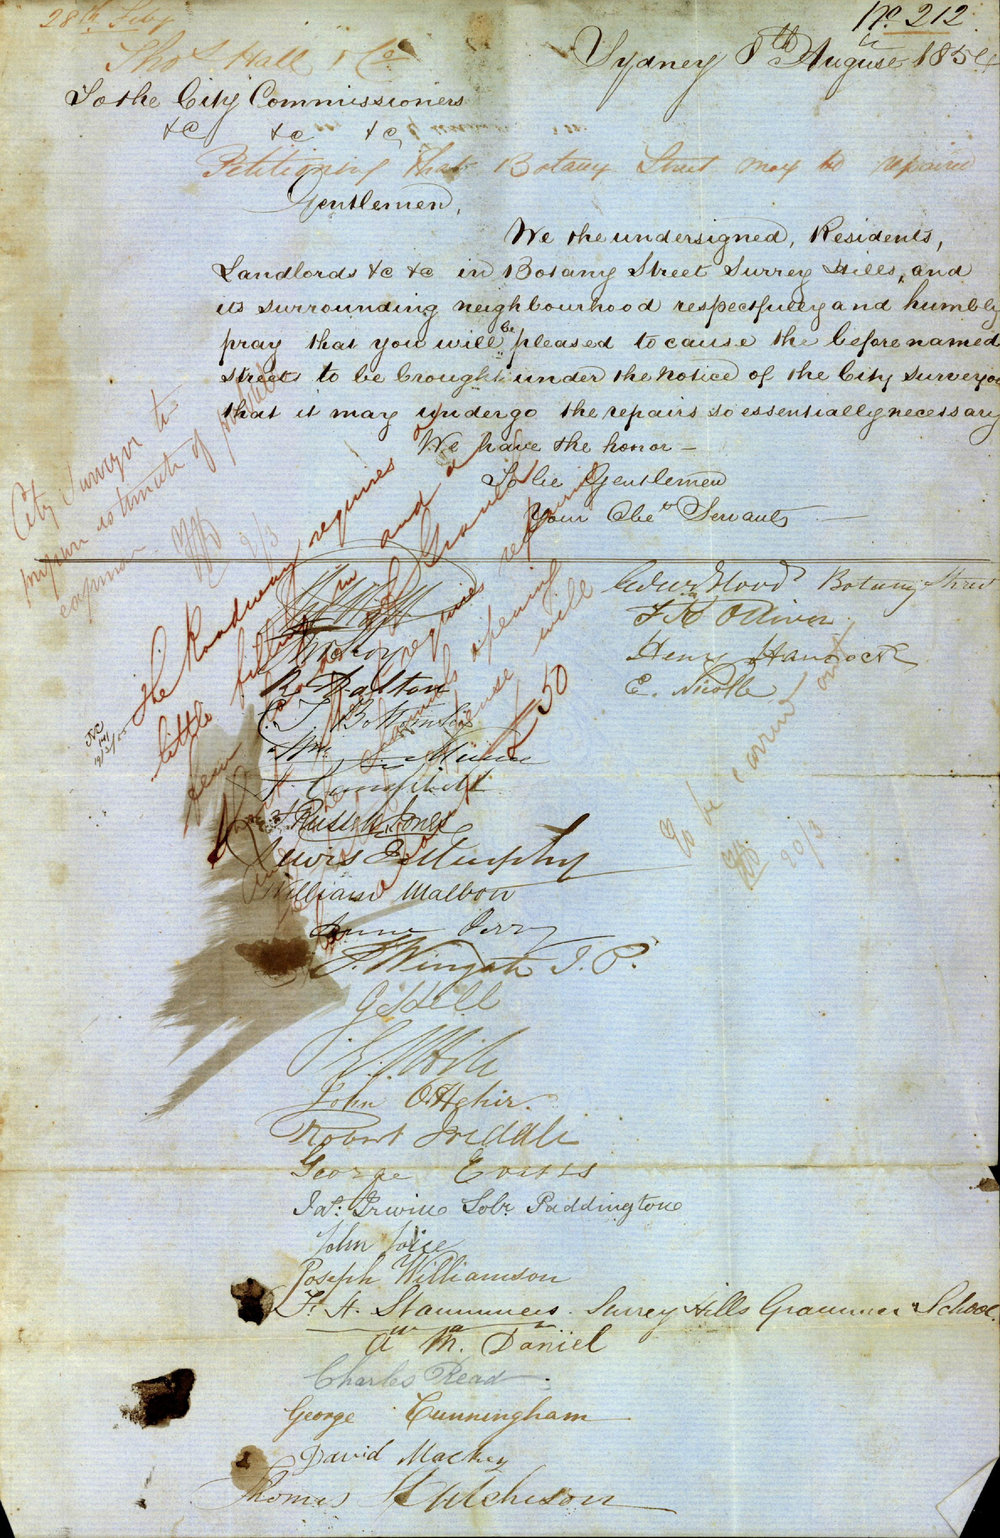 28th Feby
No. 212
Thos Hall & Co
Sydney 8th August 1854
To the City Commissioners
&c &c &c
Petitioning that Botany Street may be repaired
Gentlemen,
We the undersigned, Residents,
Landlords &c &c in Botany Street Surrey Hills, and
its surrounding neighbourhood respectfully and humbly
pray that you will be pleased to cause the before named
street to be brought under the notice of the City Surveyor
that it may undergo the repairs so essentially necessary
We have the honor –
To be Gentlemen
Your Obet Servants
City Surveyor to
prepare estimate of probable
expense
9/3
The Roadway requires a
little filling in and a
few
of Gravel
requires repairing
opening
will
£50
To be carried out
20/3
Thos Hall
R. Dalton
Wm
J. Campbell
Russell Jones
Lewis E Murphy
William Malbon
Anne Perry
J. Wingate J. P.
G Hill
John
Robert Iredale
George Evans
Jas. Irwin Solr. Paddington
John Joice
Joseph Williamson
F. H. Stammers. Surrey Hills Grammar School
A M. Daniel
Charles Read
George Cunningham
David Mackey
Thomas Hutcheson
Edwd Hood Botany Street
Henry Hancock
E. Nicolle